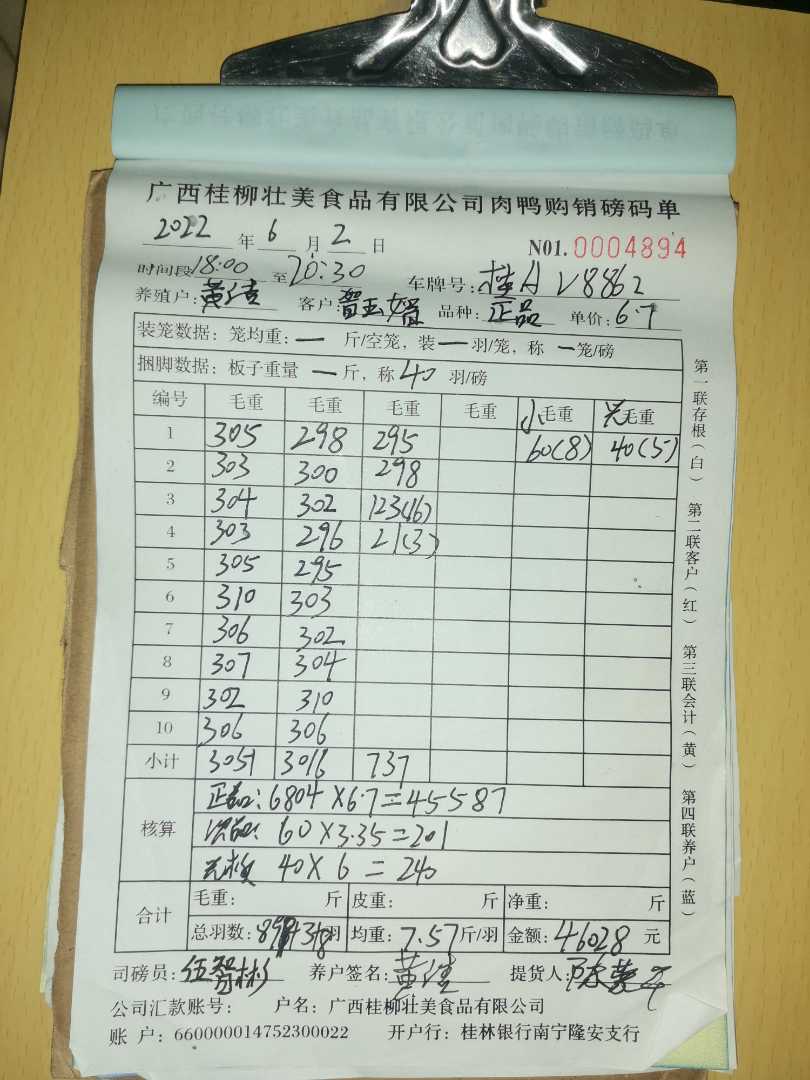 广西桂柳壮美食品有限公司肉鸭购销磅码单
2022 年 6 月 2 日 N01. 0004894
时间段 18:00 至 20:30 车牌号: 桂A V8862
养殖户: 黄 客户: 品种: 正品 单价: 6.7
装笼数据: 笼均重: — 斤/空笼, 装 — 羽/笼, 称 — 笼/磅
捆脚数据: 板子重量 — 斤, 称 40 羽/磅
编号 毛重 毛重 毛重 毛重 小毛重 毛重
1 305 298 295 60(8) 40(5)
2 303 300 298
3 304 302 123(16)
4 303 296 21(3)
5 305 295
6 310 303
7 306 302
8 307 304
9 302 310
10 306 306
小计 3051 3016 737
核算
正品: 6804×6.7=45587
次品: 60×3.35=201
40×6=240
合计 毛重: 斤 皮重: 斤 净重: 斤
总羽数: 羽 均重: 7.57 斤/羽 金额: 46028 元
司磅员: 伍智彬 养户签名: 黄 提货人: 陈
公司汇款账号: 户名: 广西桂柳壮美食品有限公司
账 户: 660000014752300022 开户行: 桂林银行南宁隆安支行
第一联存根(白) 第二联客户(红) 第三联会计(黄) 第四联养户(蓝)